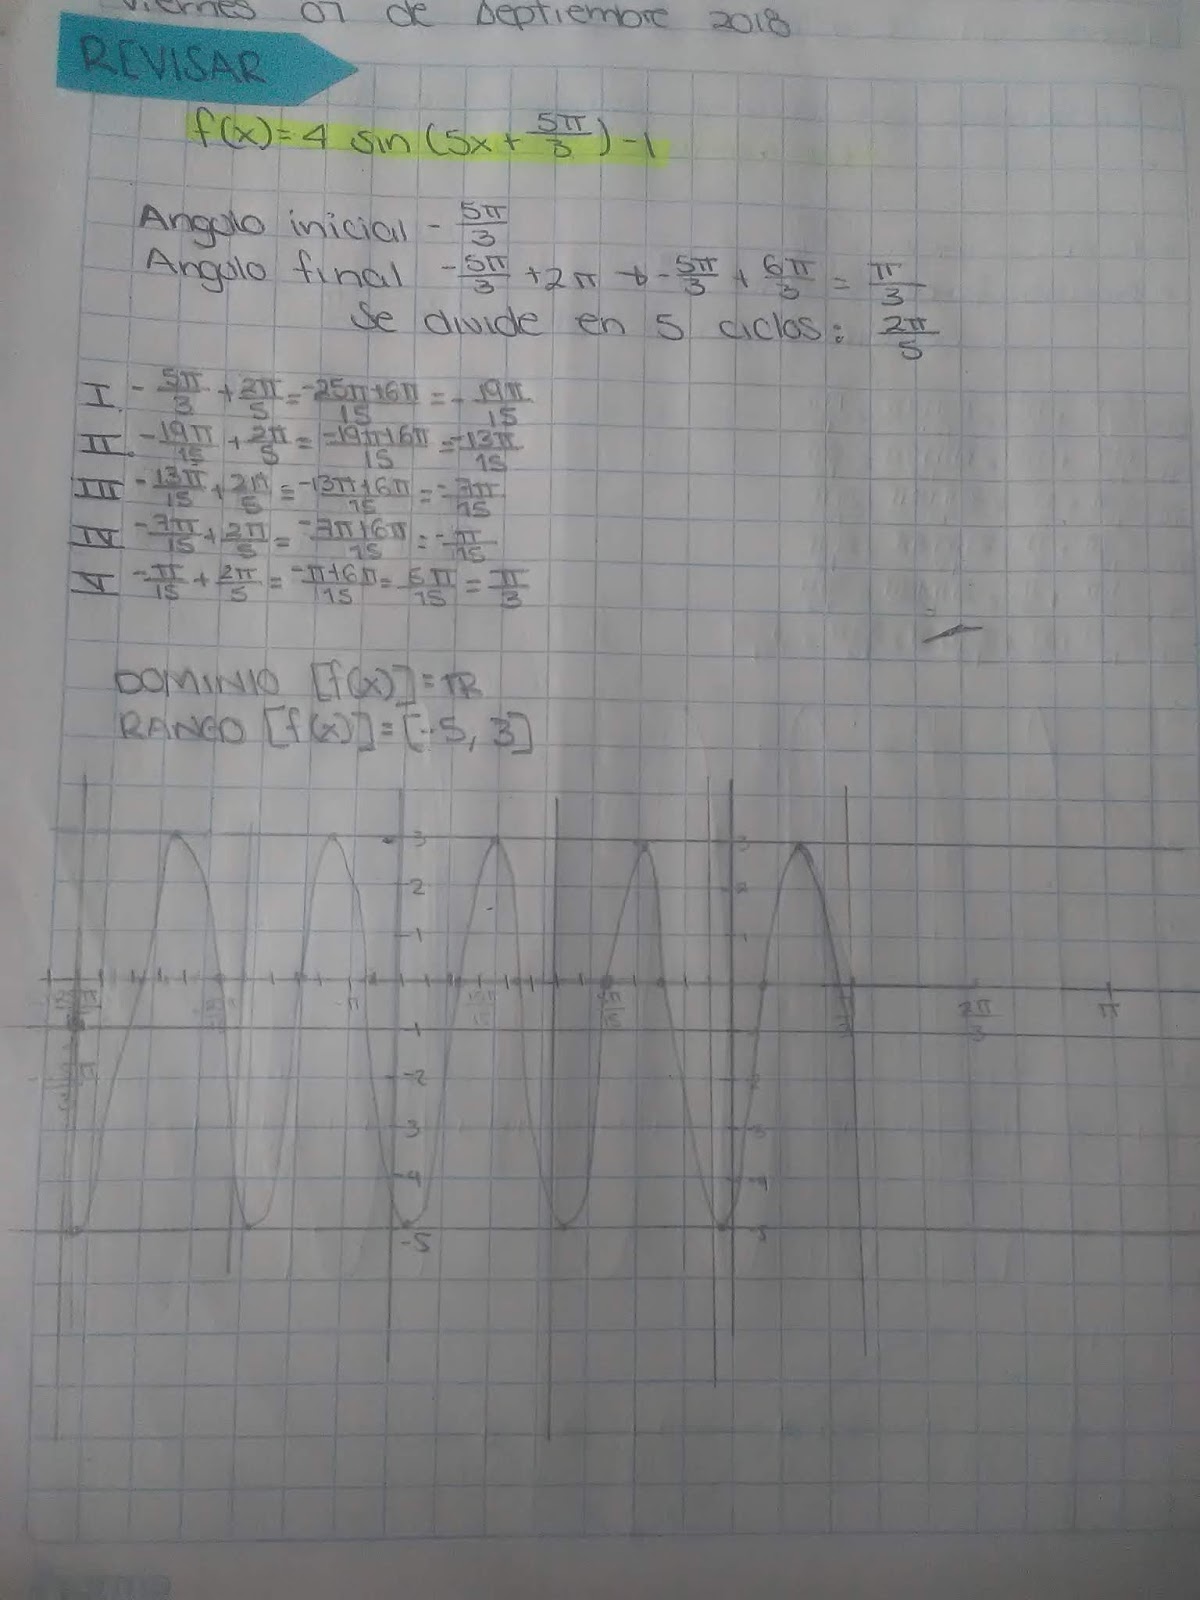 Viernes 07 de Septiembre 2018
REVISAR
f(x)= 4 sin (5x + 5π/3) -1
Angulo inicial - 5π/3
Angulo final -5π/3 + 2π → -5π/3 + 6π/3 = π/3
Se divide en 5 ciclos: 2π/5
I. -5π/3 + 2π/5 = -25π+6π/15 = -19π/15
II. -19π/15 + 2π/5 = -19π+6π/15 = -13π/15
III -13π/15 + 2π/5 = -13π+6π/15 = -7π/15
IV -7π/15 + 2π/5 = -7π+6π/15 = -π/15
V -π/15 + 2π/5 = -π+6π/15 = 5π/15 = π/3
DOMINIO [f(x)] = IR
RANGO [f(x)] = [-5, 3]
3 3
2 2
1 1
-π π/3 2π/3 π
-1
-2 -2
-3 -3
-4 -4
-5 -5